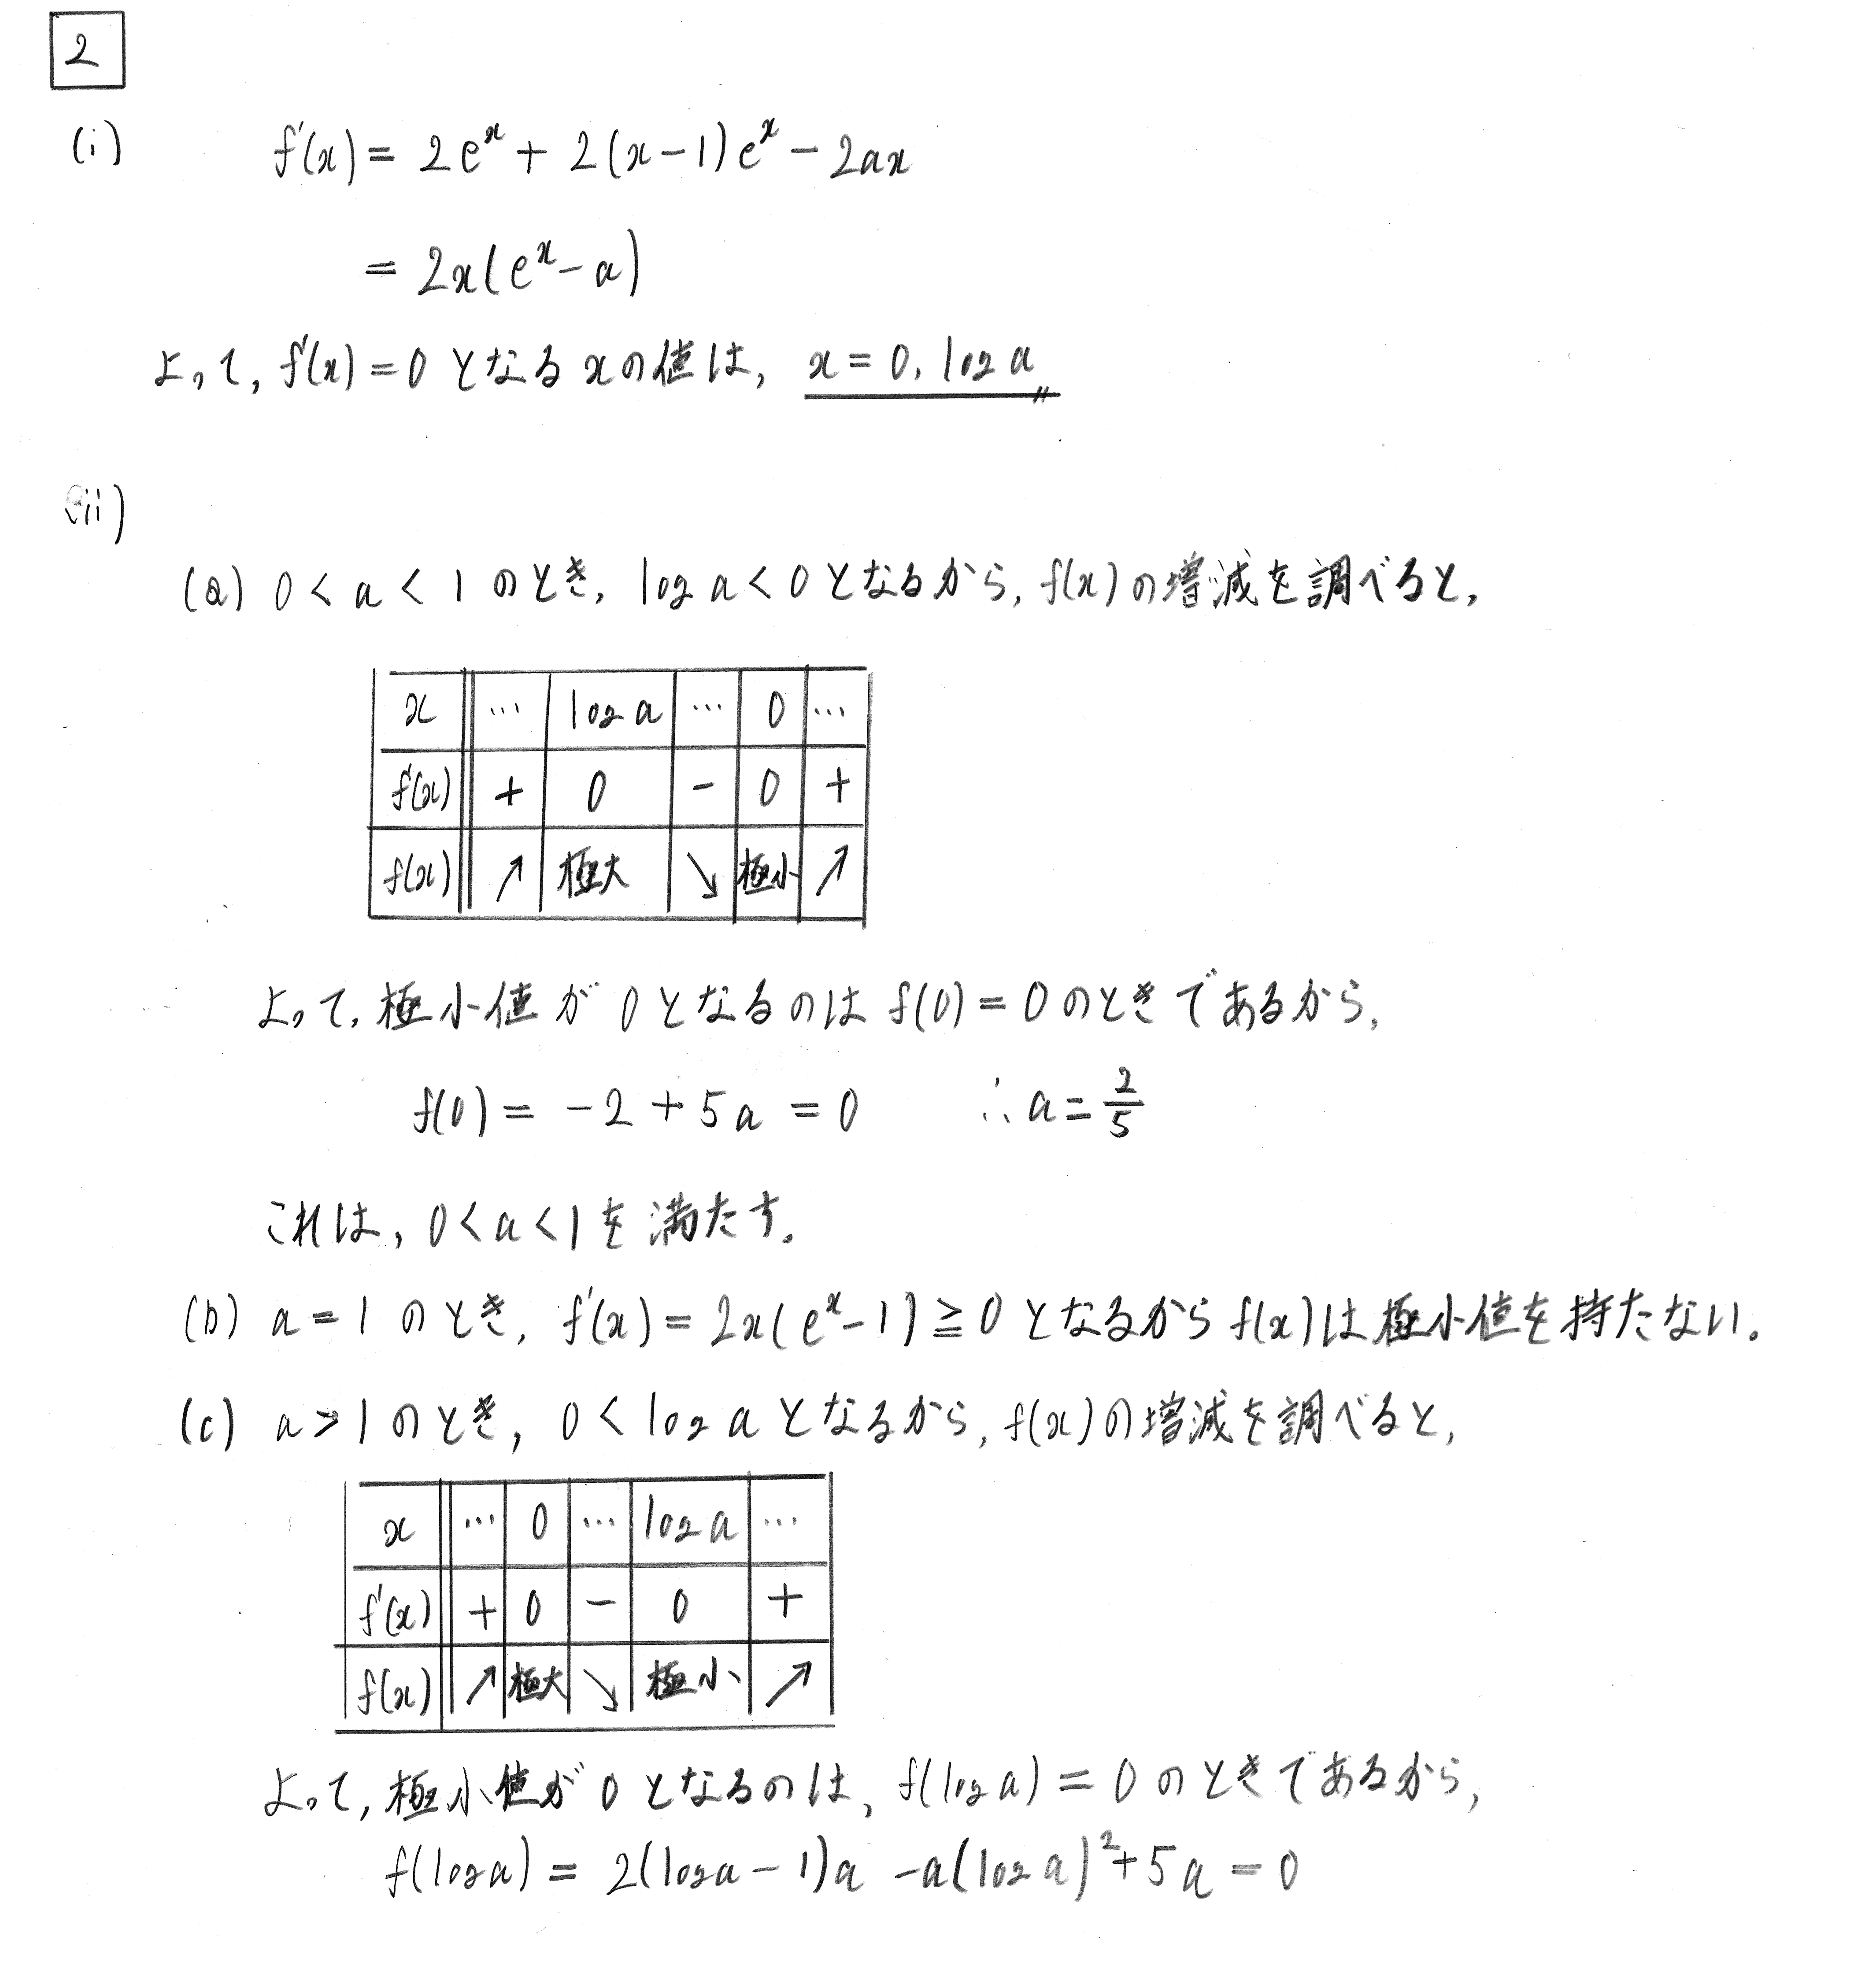 2
(i) f'(x) = 2e^x + 2(x-1)e^x - 2ax
= 2x(e^x - a)
よって, f'(x) = 0 となる x の値は, x = 0, log a 〃
(ii)
(a) 0 < a < 1 のとき, log a < 0 となるから, f(x) の増減を調べると,
x … log a … 0 …
f'(x) + 0 - 0 +
f(x) ↗ 極大 ↘ 極小 ↗
よって, 極小値が 0 となるのは f(0) = 0 のときであるから,
f(0) = -2 + 5a = 0 ∴ a = 2/5
これは, 0 < a < 1 を満たす.
(b) a = 1 のとき, f'(x) = 2x(e^x - 1) ≧ 0 となるから f(x) は極小値を持たない.
(c) a > 1 のとき, 0 < log a となるから, f(x) の増減を調べると,
x … 0 … log a …
f'(x) + 0 - 0 +
f(x) ↗ 極大 ↘ 極小 ↗
よって, 極小値が 0 となるのは, f(log a) = 0 のときであるから,
f(log a) = 2(log a - 1)a - a(log a)^2 + 5a = 0